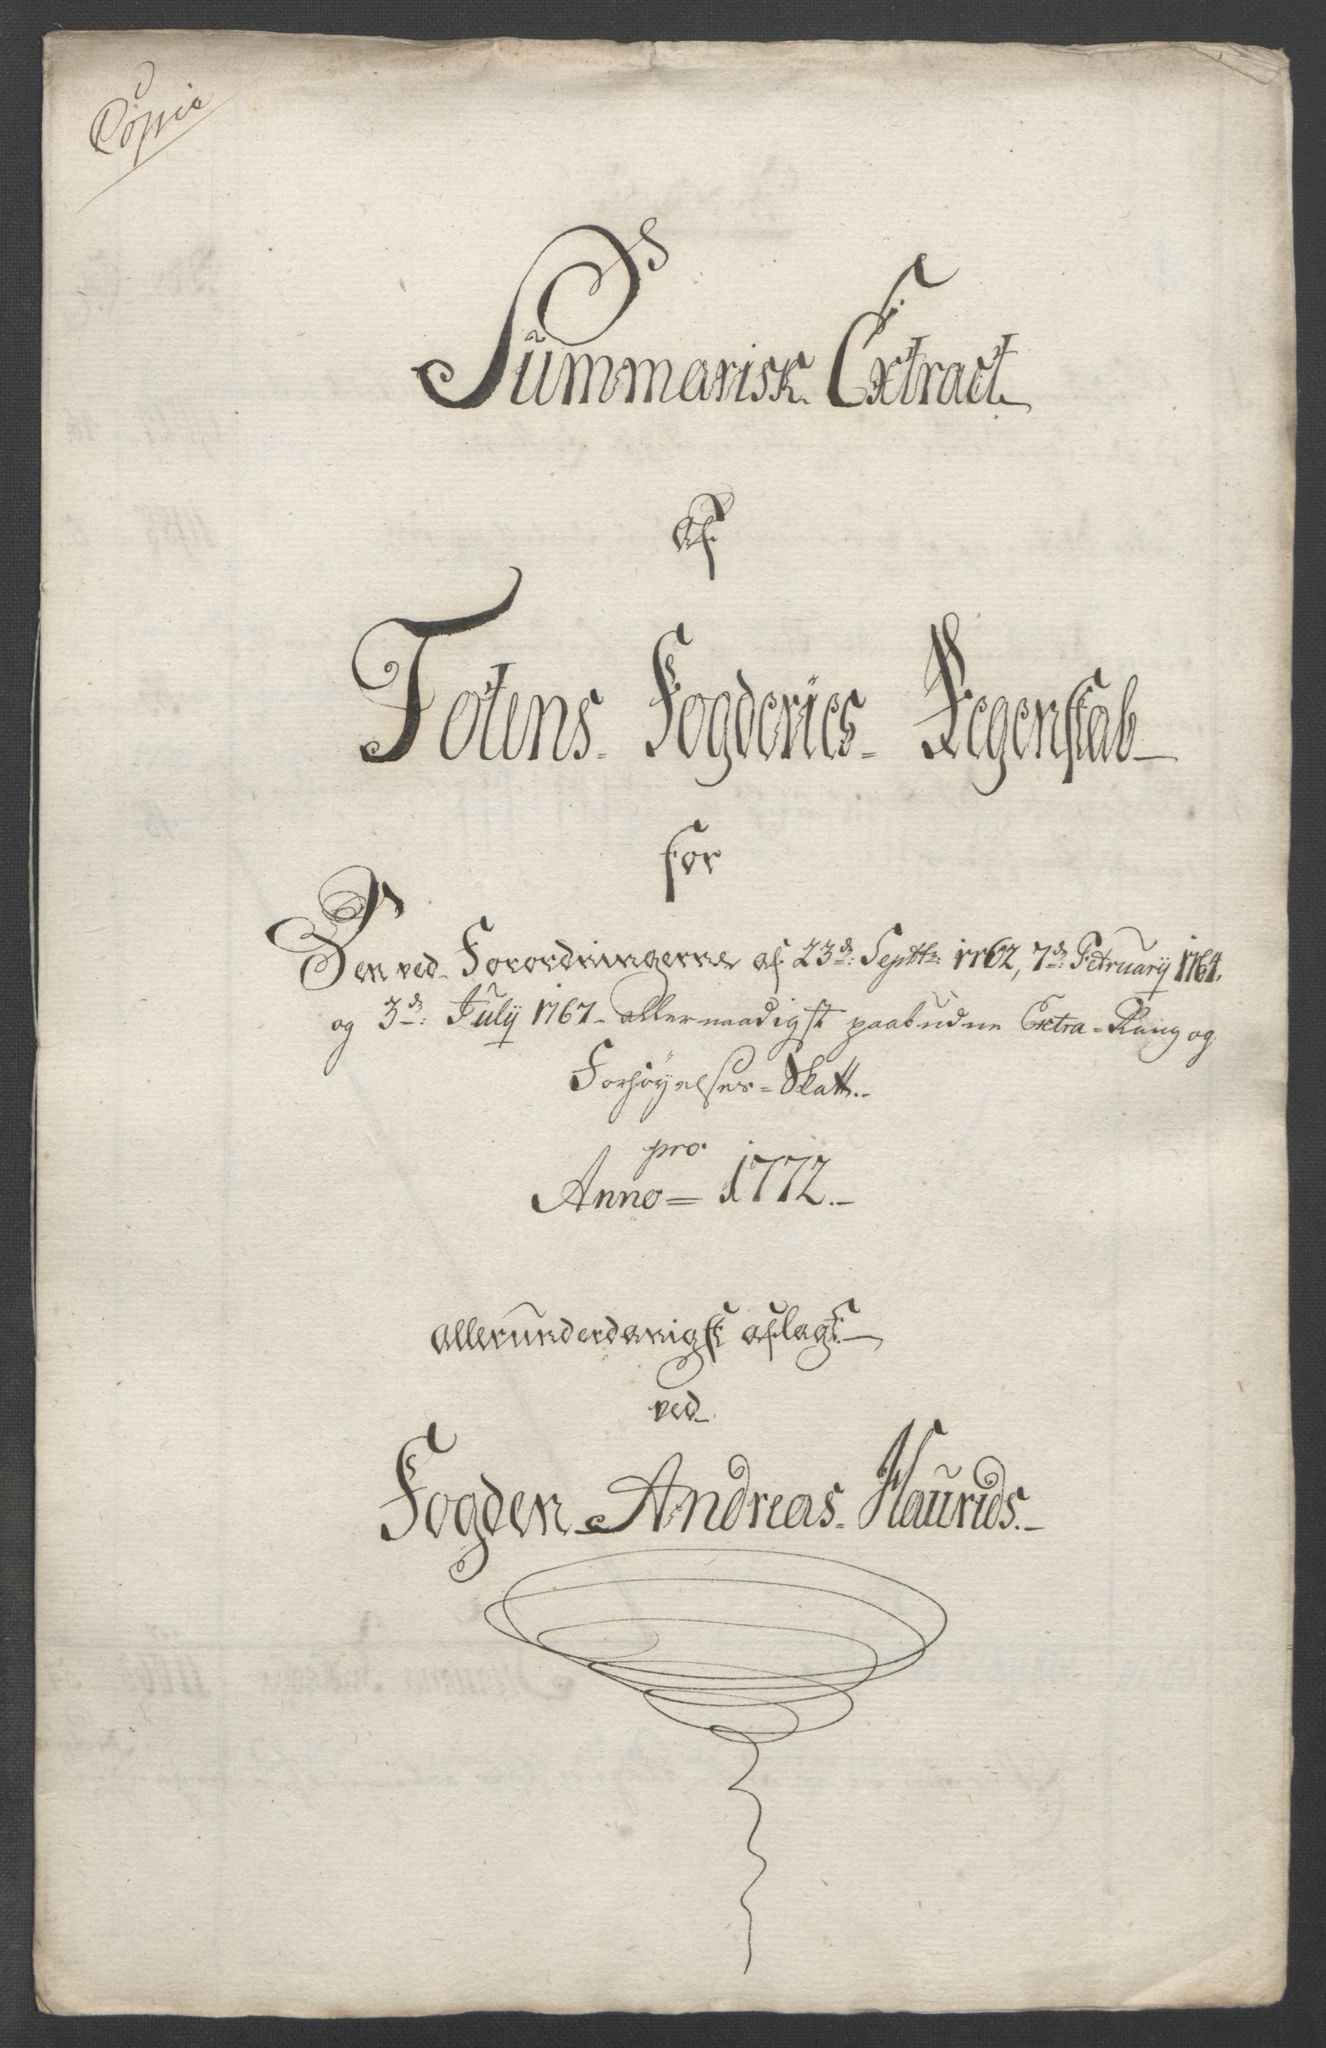 Copia
Summarisk Extract
af
Totens Fogderies Regenskab
for
Den ved Forordningerne af 23de Septbr 1762, 7de Februarij 1764.
og 3de Julij 1767 allernaadigst paabudne Extra- Rang og
Forhøyelses-Skatt.
pro
Anno 1772.
allerunderdanigst aflagt
ved
Fogden Andreas Flaurids.